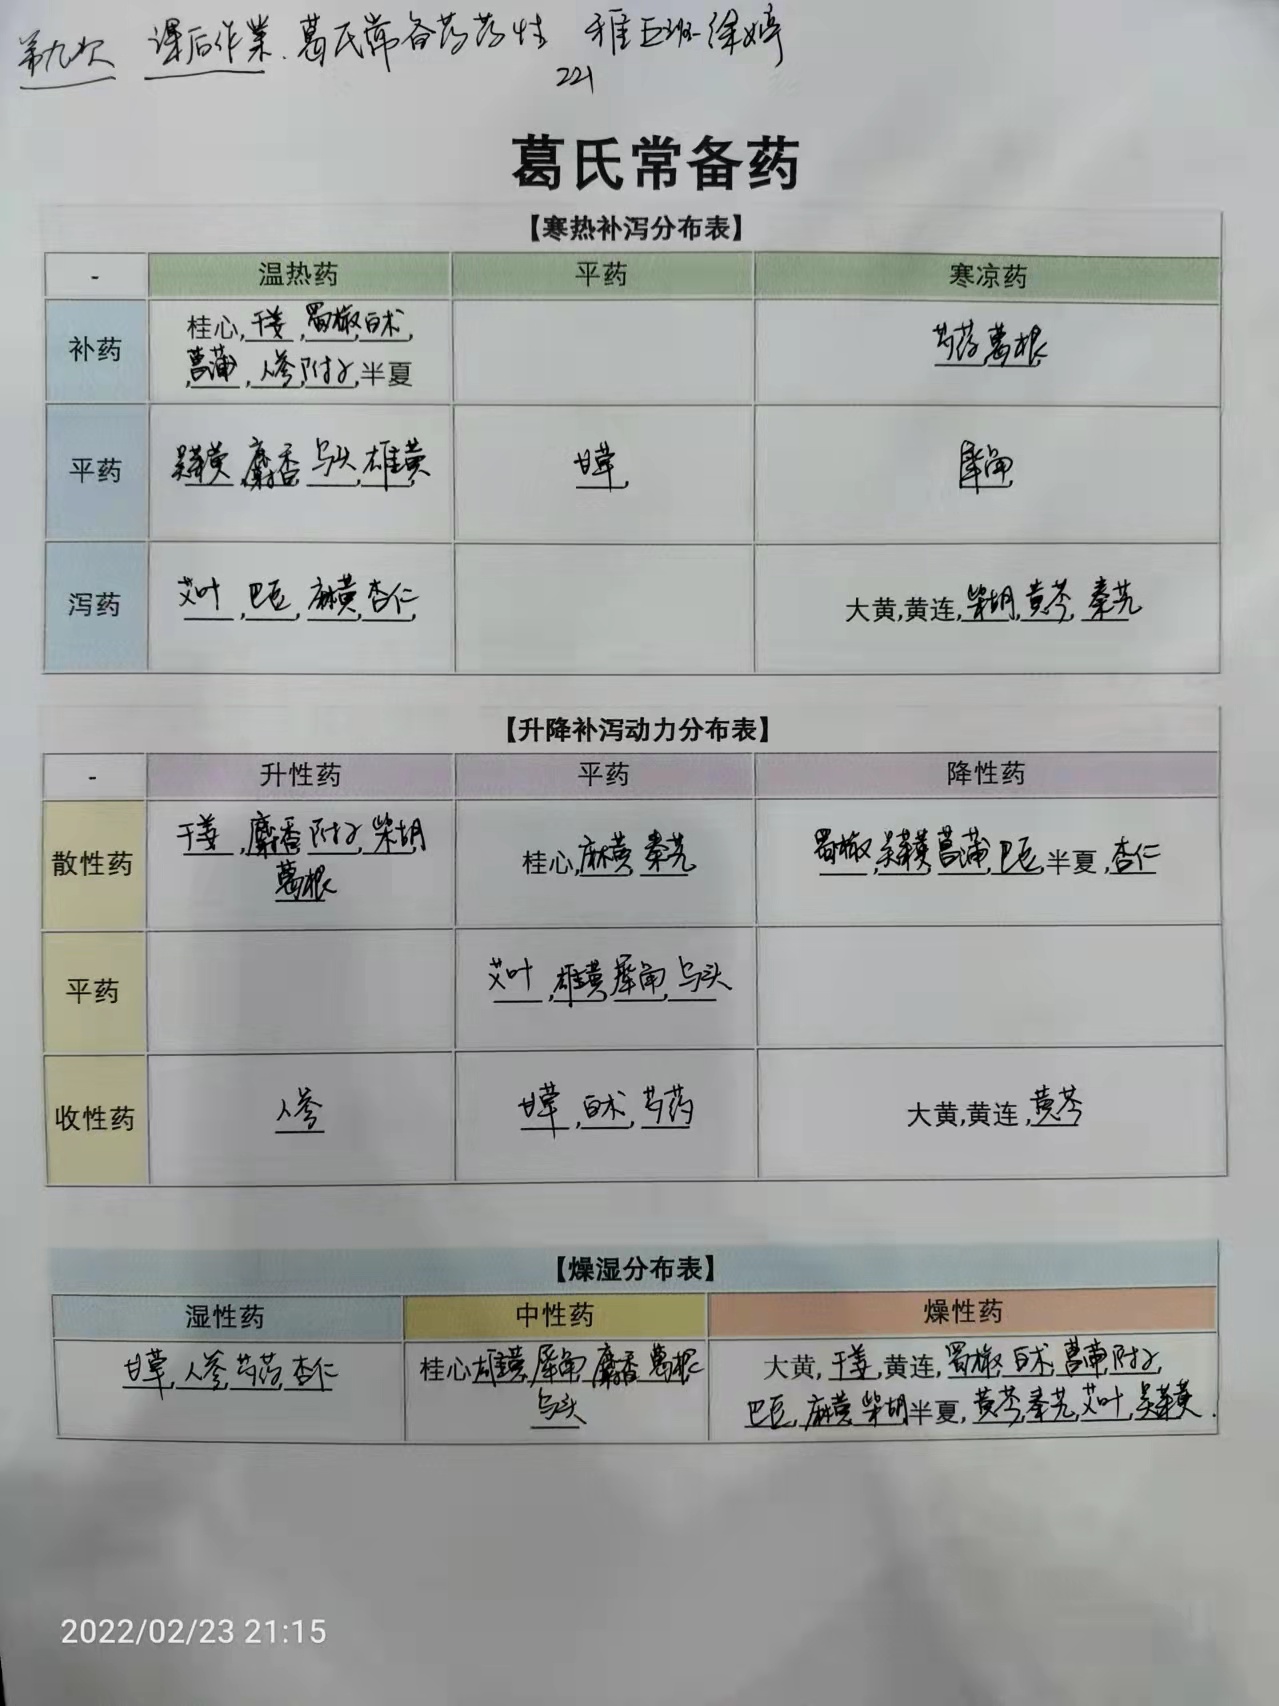 第九次 课后作業.葛氏常备药药性 雅巨班徐婷
221
葛氏常备药
【寒热补泻分布表】
- 温热药 平药 寒凉药
补药 桂心,干姜,蜀椒,白术, 芍药,葛根
菖蒲,人参,附子,半夏
平药 吴茱萸,麝香,乌头,雄黄, 甘草, 犀角,
泻药 艾叶,巴豆,麻黄,杏仁, 大黄,黄连,柴胡,黄芩,秦艽
【升降补泻动力分布表】
- 升性药 平药 降性药
散性药 干姜,麝香,附子,柴胡 桂心,麻黄,秦艽 蜀椒,吴茱萸,菖蒲,巴豆,半夏,杏仁
葛根
平药 艾叶,雄黄,犀角,乌头
收性药 人参 甘草,白术,芍药 大黄,黄连,黄芩
【燥湿分布表】
湿性药 中性药 燥性药
甘草,人参,芍药,杏仁 桂心,雄黄,犀角,麝香,葛根 大黄,干姜,黄连,蜀椒,白术,菖蒲,附子,
乌头 巴豆,麻黄,柴胡,半夏,黄芩,秦艽,艾叶,吴茱萸.
2022/02/23 21:15